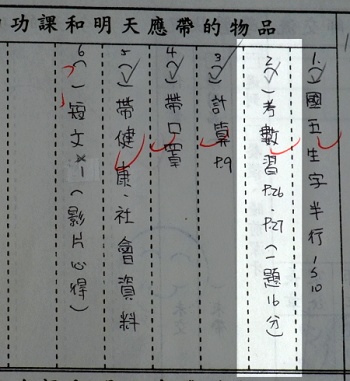 功課和明天應帶的物品
1.(✓)國五生字半行,5,10
2.(✓)考數習P.26.P.27(一題16分)
3(✓)計算P.9
4(✓)帶口罩
5(✓)帶健康、社會資料
6( )短文×1(影片心得)